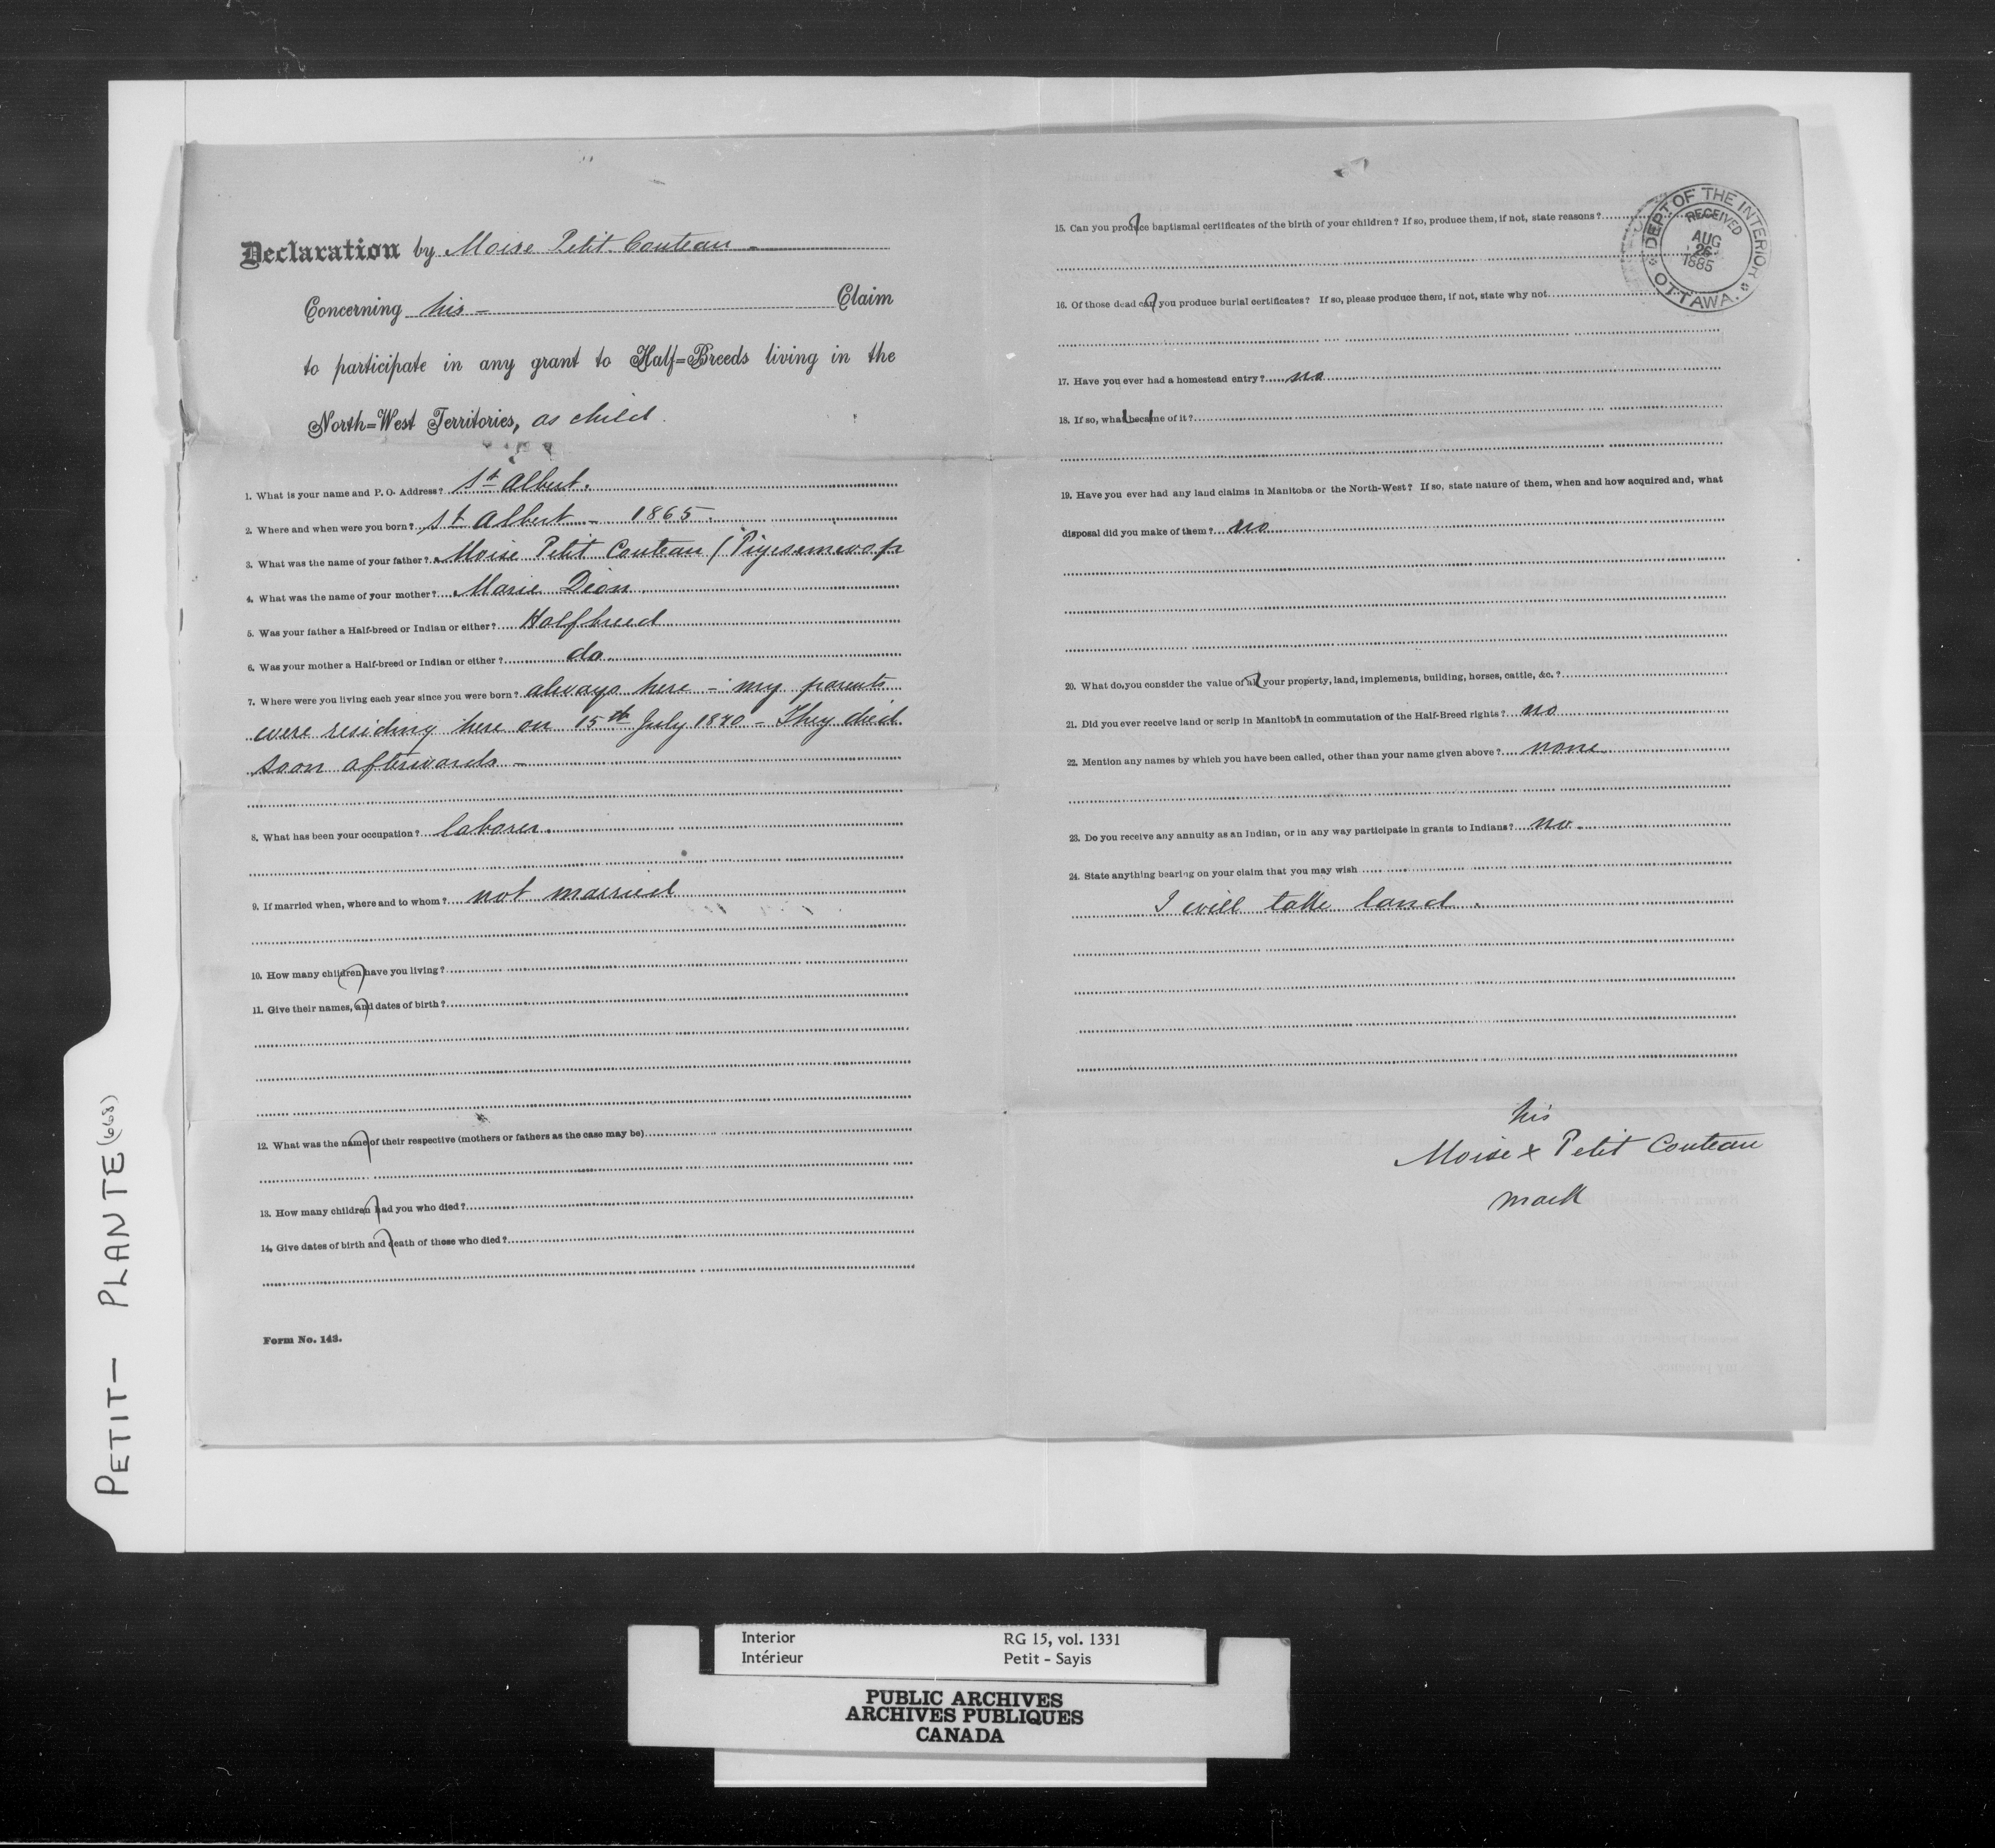 Declaration by Moise Petit Couteau -
Concerning his - Claim
to participate in any grant to Half=Breeds living in the
North=West Territories, as child.
1. What is your name and P. O. Address? St Albert.
2. Where and when were you born? St Albert - 1865.
3. What was the name of your father? Moise Petit Couteau (Piyesemwop
4. What was the name of your mother? Marie Dion.
5. Was your father a Half-breed or Indian or either? Halfbreed
6. Was your mother a Half-breed or Indian or either? do.
7. Where were you living each year since you were born? always here - my parents
were residing here on 15th July 1870 - They died
soon afterwards -
8. What has been your occupation? laborer.
9. If married when, where and to whom? not married
10. How many children have you living?
11. Give their names, and dates of birth?
12. What was the name of their respective (mothers or fathers as the case may be)
13. How many children had you who died?
14. Give dates of birth and death of those who died?
Form No. 143.
15. Can you produce baptismal certificates of the birth of your children? If so, produce them, if not, state reasons?
DEPT OF THE INTERIOR
RECEIVED
AUG
26
1885
OTTAWA.
16. Of those dead can you produce burial certificates? If so, please produce them, if not, state why not
17. Have you ever had a homestead entry? no
18. If so, what became of it?
19. Have you ever had any land claims in Manitoba or the North-West? If so, state nature of them, when and how acquired and, what
disposal did you make of them? no
20. What do you consider the value of all your property, land, implements, building, horses, cattle, &c.?
21. Did you ever receive land or scrip in Manitoba in commutation of the Half-Breed rights? no
22. Mention any names by which you have been called, other than your name given above? none
23. Do you receive any annuity as an Indian, or in any way participate in grants to Indians? no.
24. State anything bearing on your claim that you may wish
I will take land.
his
Moise x Petit Couteau
mark
PETIT- PLANTE (668)
Interior RG 15, vol. 1331
Intérieur Petit - Sayis
PUBLIC ARCHIVES
ARCHIVES PUBLIQUES
CANADA